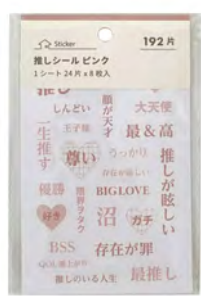 Sticker
192片
推しシール ピンク
1シート24片×8枚入
推し
しんどい
顔が天才
大天使
一生推す
王子様
最&高
尊い
うっかり
推しが眩しい
存在が尊い
優勝
限界ヲタク
BIGLOVE
好き
沼
ガチ
BSS
存在が罪
QOL爆上がり
推しのいる人生
最推し